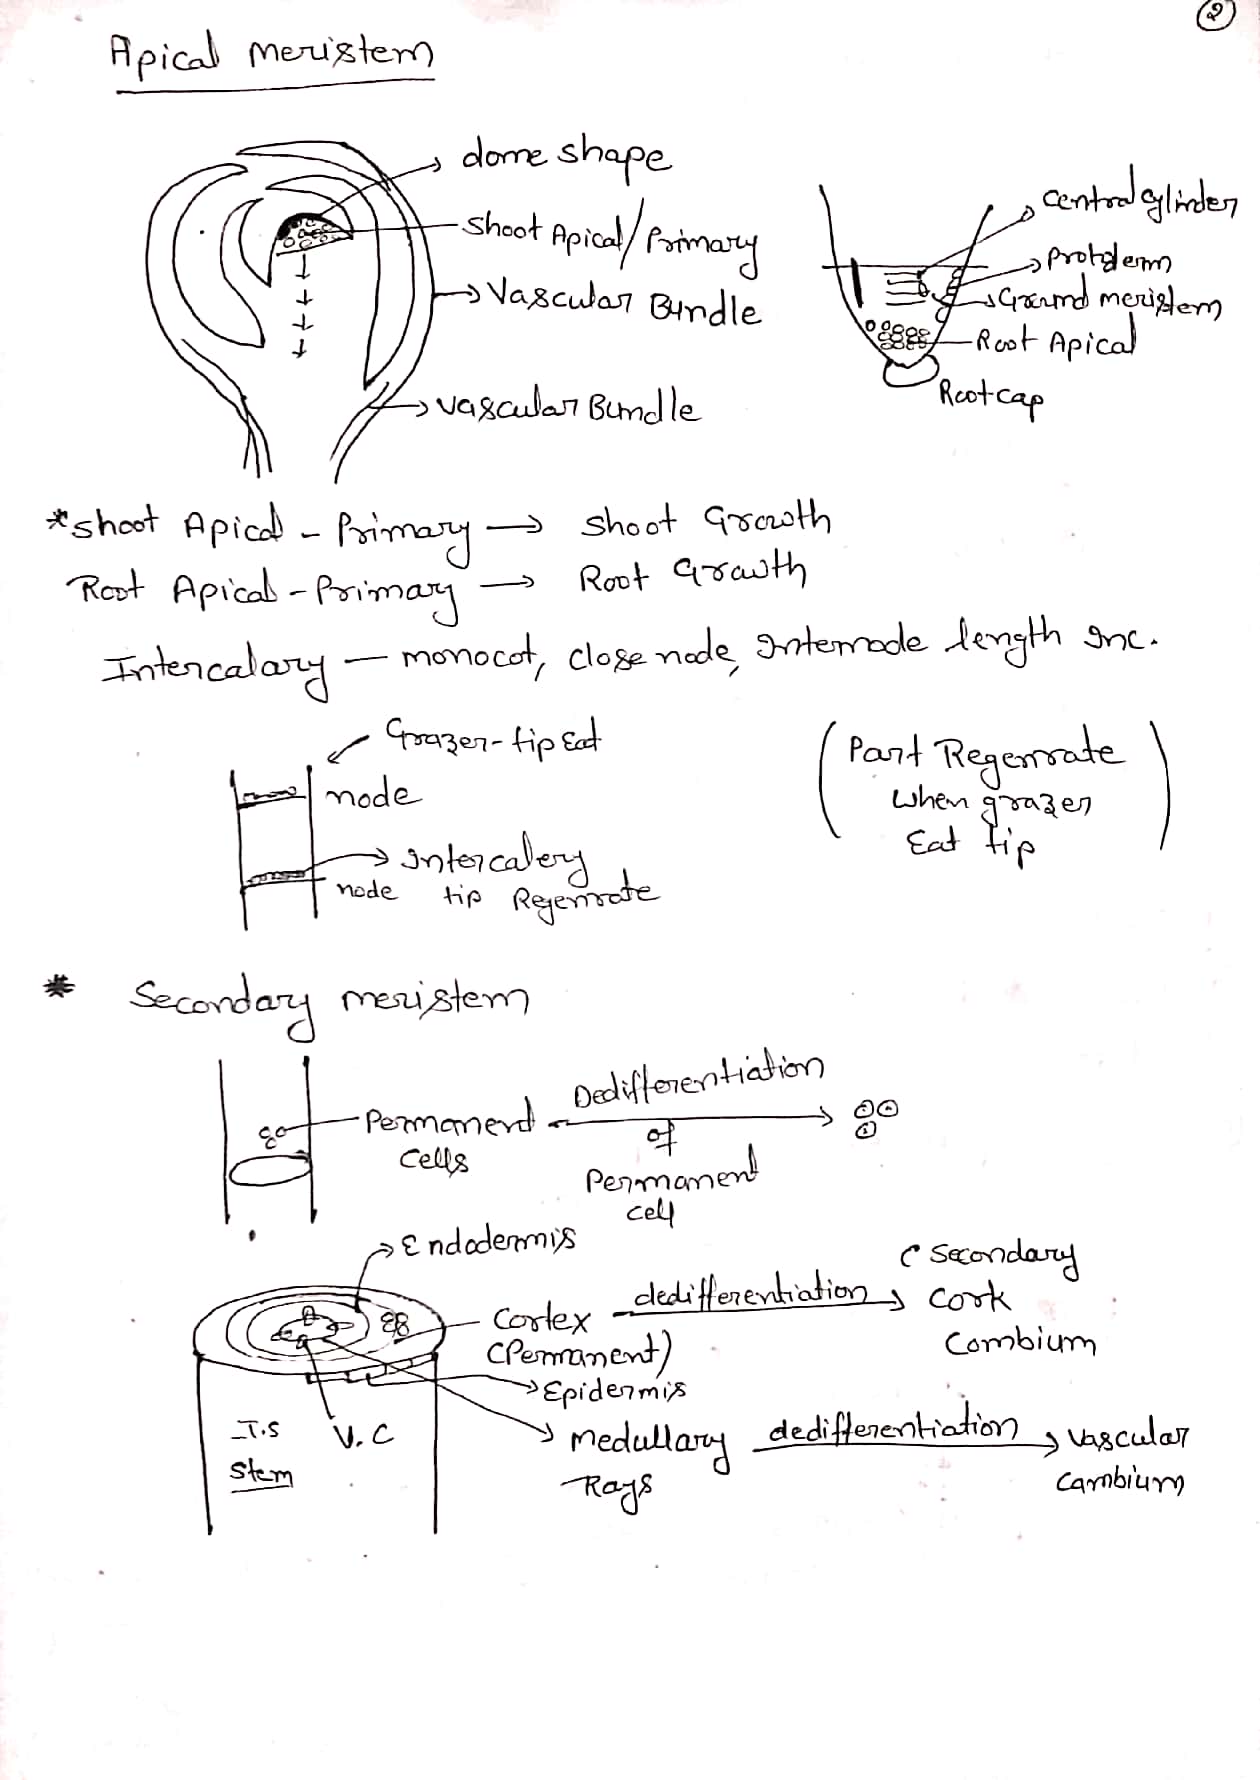 2
Apical meristem
dome shape
Shoot Apical/Primary
Vascular Bundle
Vascular Bundle
Central Cylinder
Protoderm
Ground meristem
Root Apical
Root cap
*Shoot Apical - Primary → Shoot Growth
Root Apical - Primary → Root Growth
Intercalary - monocot, close node, Internode length Inc.
Grazer - tip Eat
node
Intercalery
node tip Regenrate
(Part Regenrate
When grazer
Eat tip)
* Secondary meristem
Permanent
Cells
Dedifferentiation
of
Permanent
cell
Endodermis
Cortex
(Permanent)
dedifferentiation
(Secondary
Cork
Cambium
Epidermis
Medullary
Rays
dedifferentiation
Vascular
Cambium
T.S
Stem
V.C